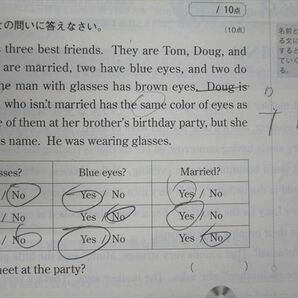 / 10点
との問いに答えなさい。 〔10点〕
s three best friends. They are Tom, Doug, and
are married, two have blue eyes, and two do
he man with glasses has brown eyes, Doug is
, who isn't married has the same color of eyes as
e of them at her brother's birthday party, but she
's name. He was wearing glasses.
sses? Blue eyes? Married?
/ No Yes / No Yes / No
/ No Yes / No Yes / No
/ No Yes / No Yes / No
neet at the party? ( )
名前と
る文に
すると
ていく
る。